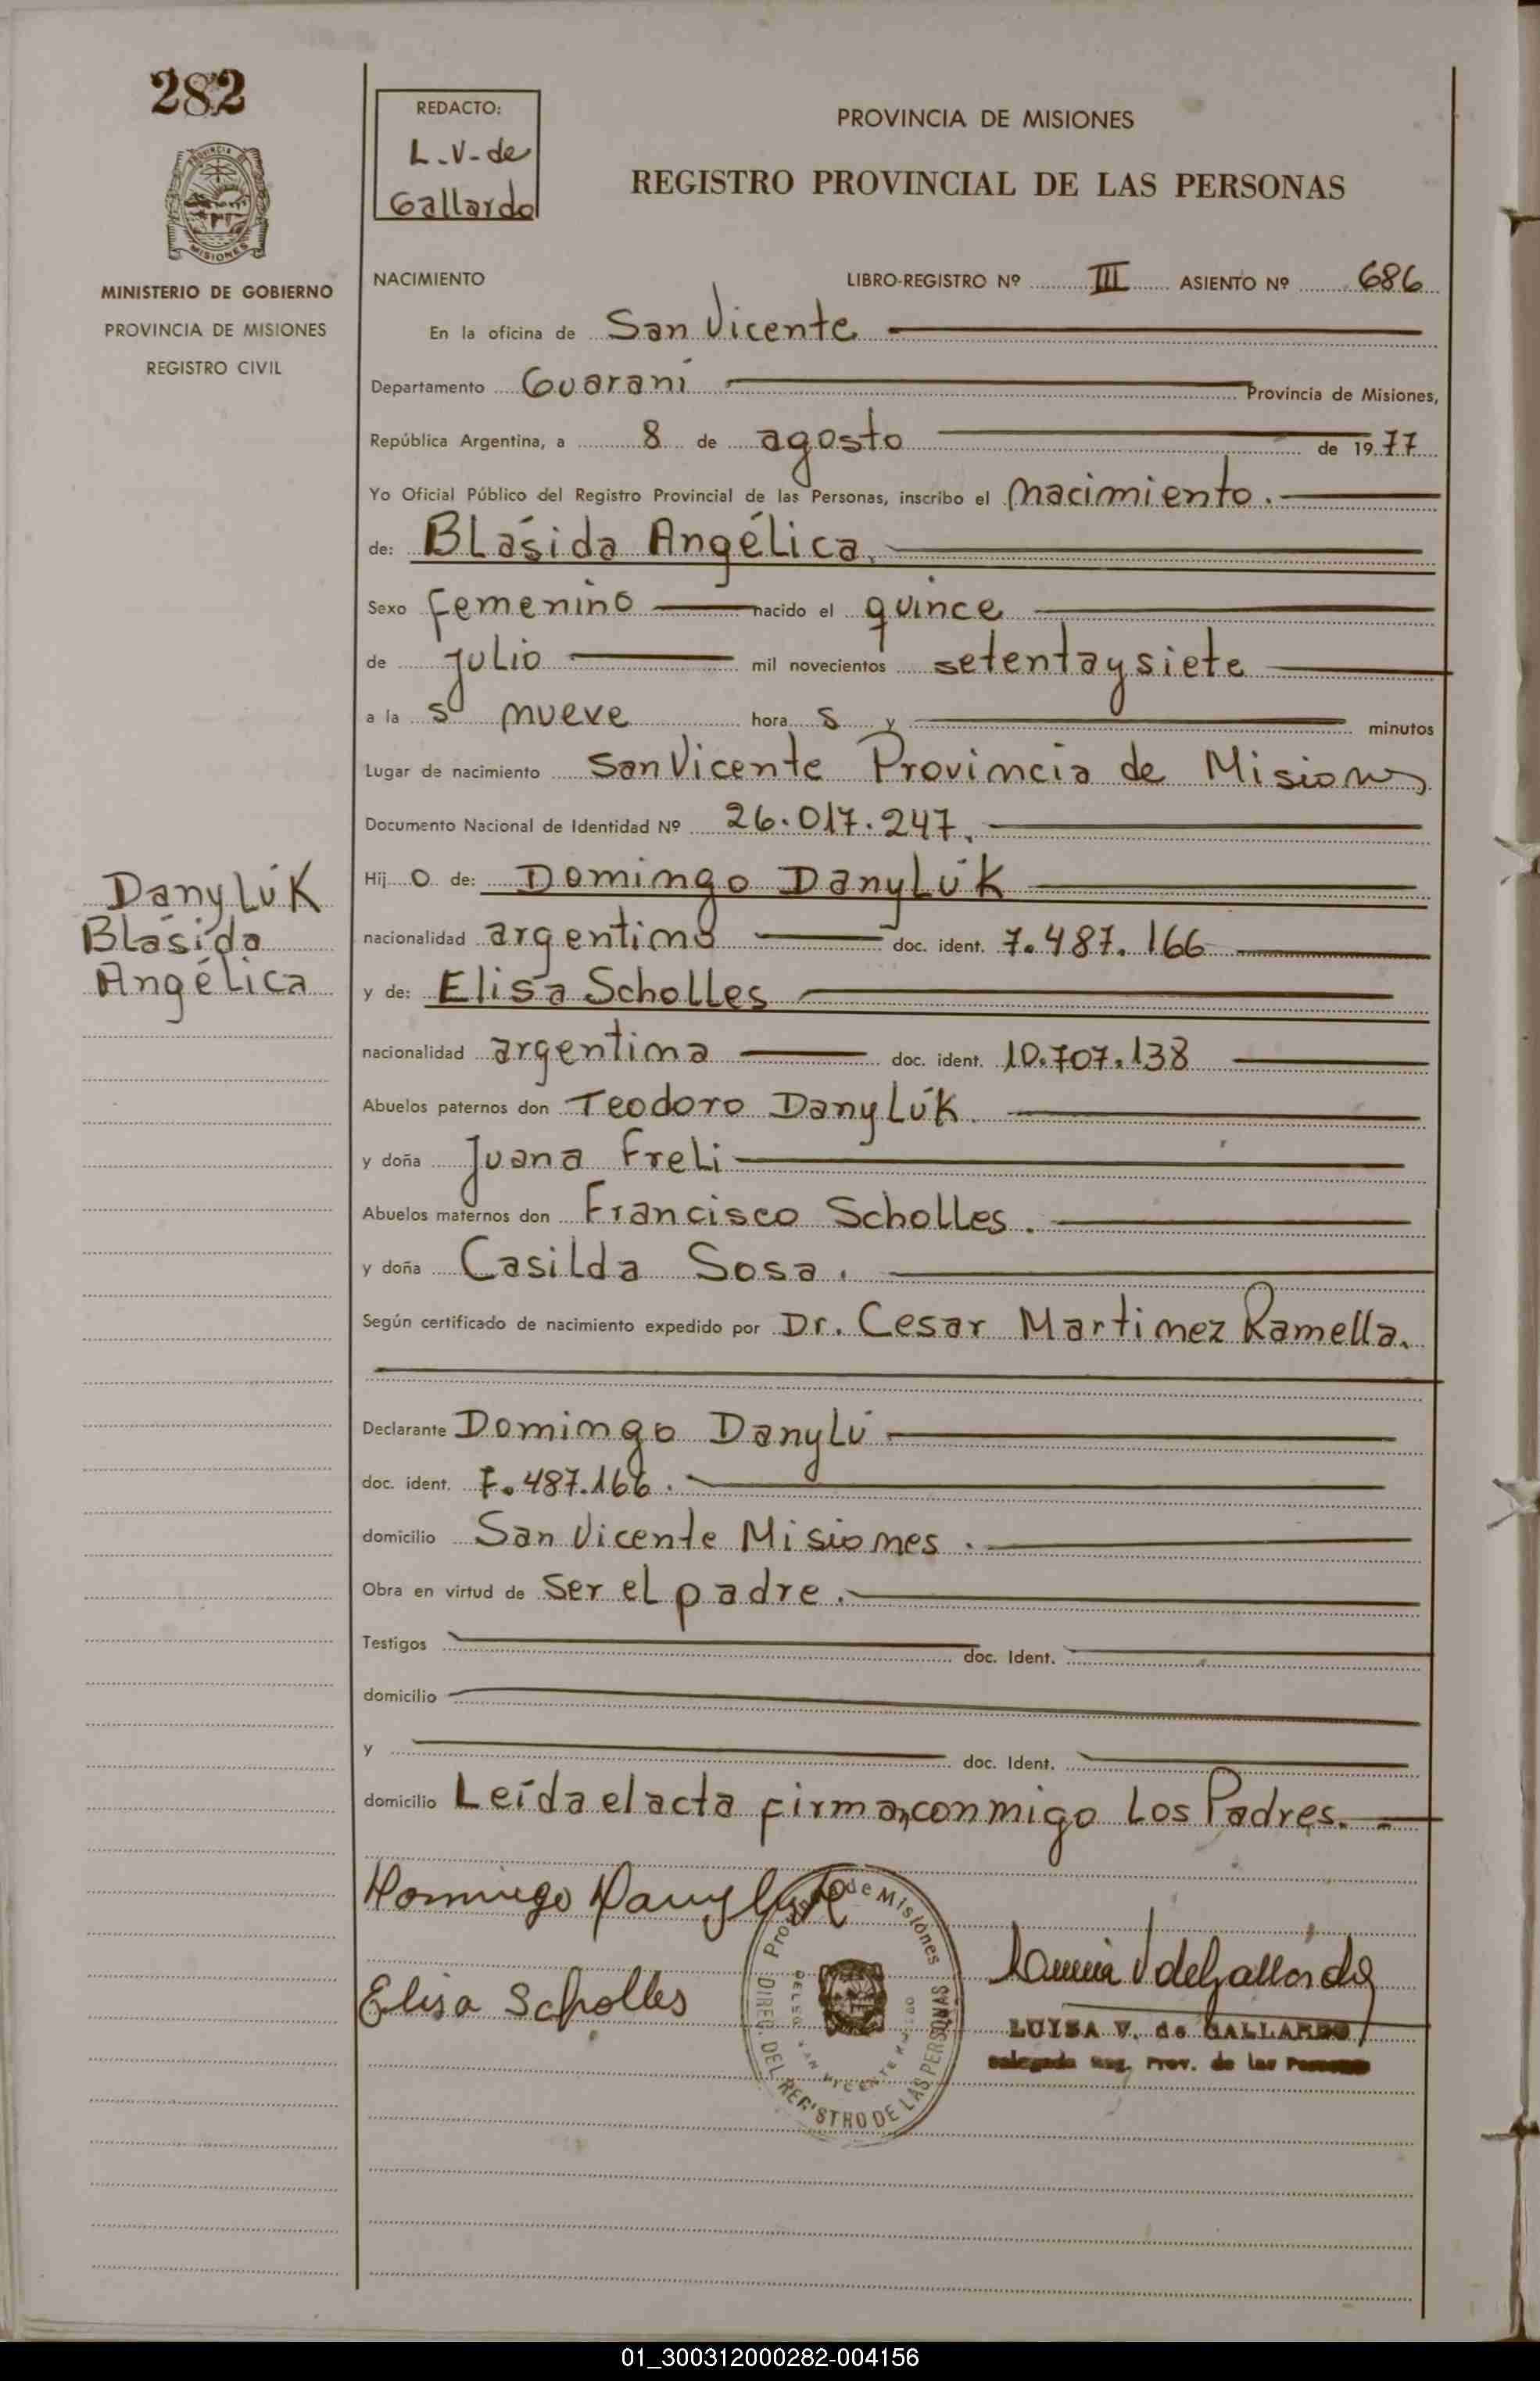 282
PROVINCIA DE
MISIONES
MINISTERIO DE GOBIERNO
PROVINCIA DE MISIONES
REGISTRO CIVIL
REDACTO:
L.V. de
Gallardo
PROVINCIA DE MISIONES
REGISTRO PROVINCIAL DE LAS PERSONAS
NACIMIENTO LIBRO-REGISTRO Nº III ASIENTO Nº 686
En la oficina de San Vicente
Departamento Guaraní Provincia de Misiones,
República Argentina, a 8 de agosto de 1977
Yo Oficial Público del Registro Provincial de las Personas, inscribo el nacimiento.
de: Blásida Angélica.
Sexo femenino nacido el quince
de julio mil novecientos setenta y siete
a la s nueve hora s y minutos
Lugar de nacimiento San Vicente Provincia de Misiones
Documento Nacional de Identidad Nº 26.017.247.
Hij o de: Domingo Danylúk
nacionalidad argentino doc. ident. 7.487.166
y de: Elisa Scholles
nacionalidad argentina doc. ident. 10.707.138
Abuelos paternos don Teodoro Danylúk.
y doña Juana Freli
Abuelos maternos don Francisco Scholles.
y doña Casilda Sosa.
Según certificado de nacimiento expedido por Dr. Cesar Martinez Ramella.
Declarante Domingo Danylú
doc. ident. 7.487.166.
domicilio San Vicente Misiones.
Obra en virtud de ser el padre.
Testigos doc. Ident.
domicilio
y doc. Ident.
domicilio Leída el acta firman conmigo los Padres.
Danylúk
Blásida
Angélica
Domingo Danyluk
Elisa Scholles
Provincia de Misiones
DIREC. DEL REGISTRO DE LAS PERSONAS
V de Gallardo
LUISA V. de GALLARDO
Delegada Reg. Prov. de las Personas
01_300312000282-004156